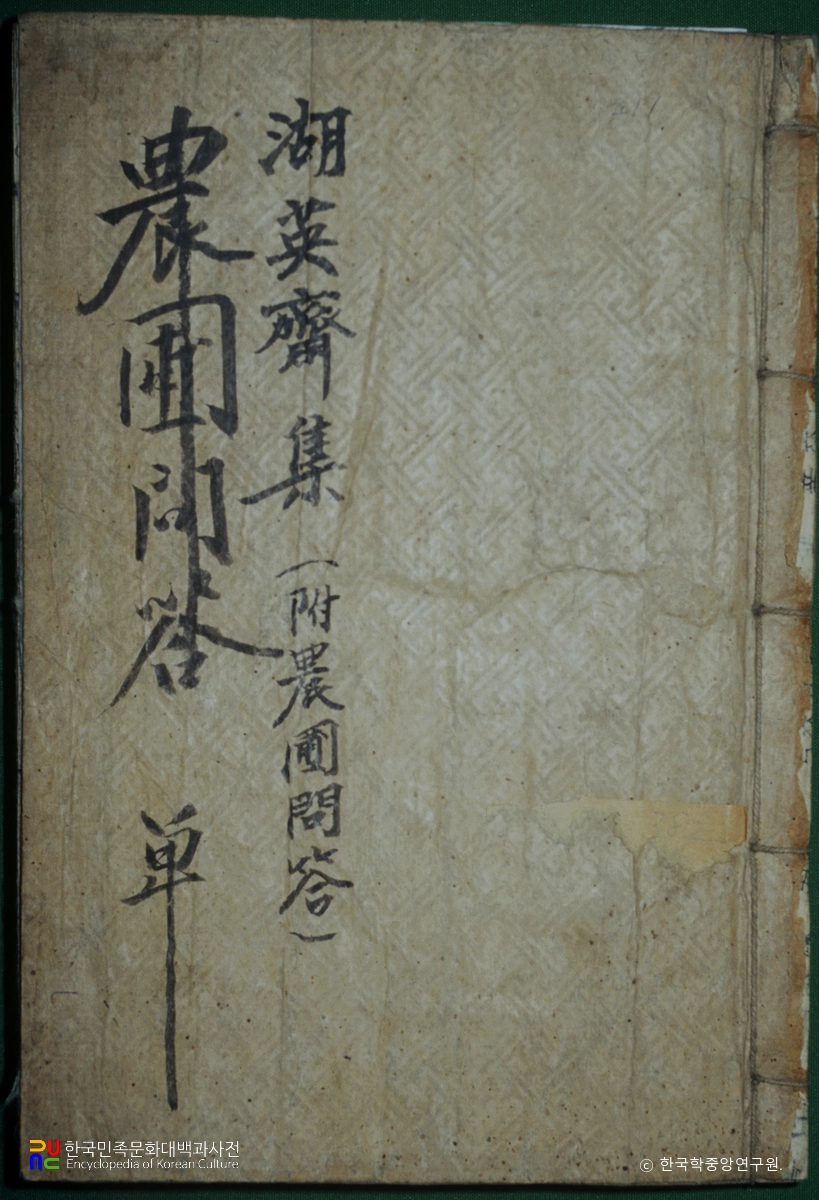 湖英齋集（附農圃問答）
農圃問答 单
한국민족문화대백과사전
Encyclopedia of Korean Culture
© 한국학중앙연구원